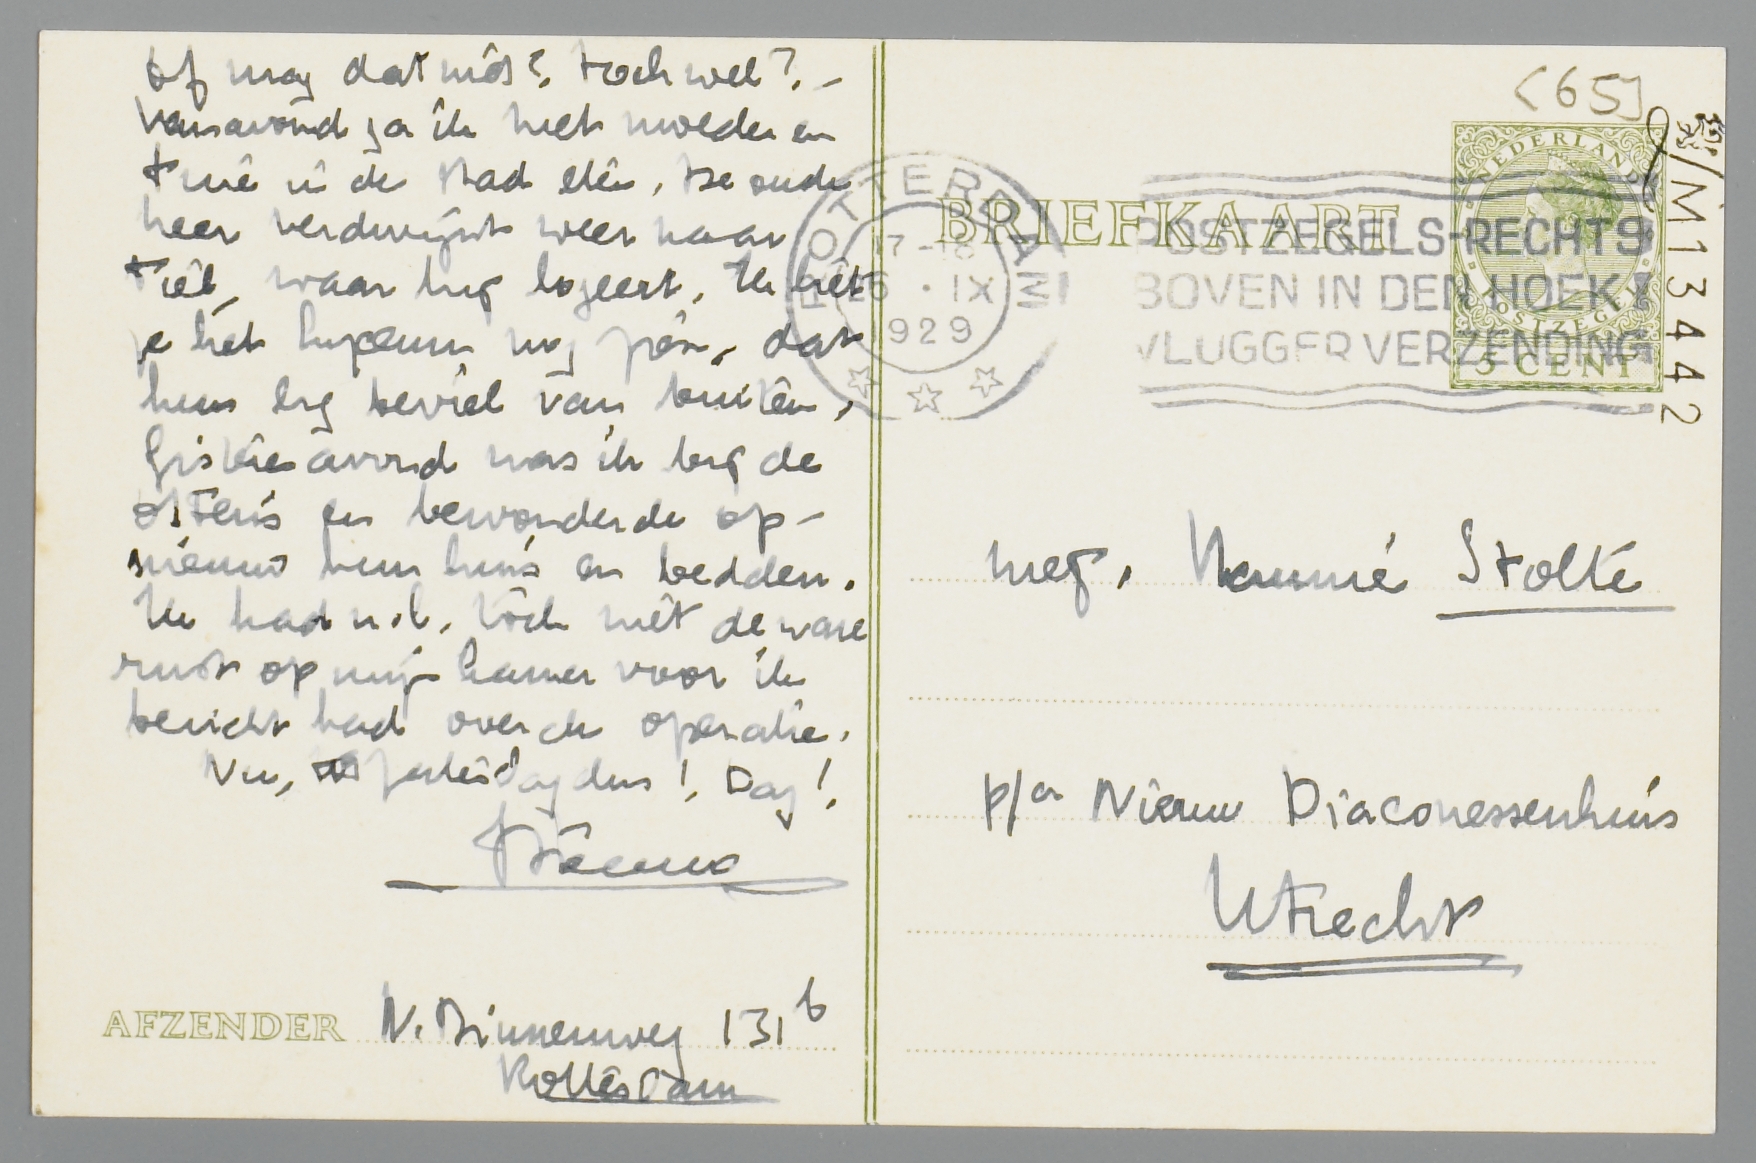 of mag dat niet? toch wel? –
Vanavond ga ik met moeder en
Truie in de stad eten, de oude
heer verdwijnt weer naar
Tiel, waar hij logeert. Ik liet
je het nog, dat
hun erg beviel van buiten,
Gisteren avond was ik bij de
en bewonderde op-
nieuw hun huis en bedden.
Ik had n.l. toch niet de ware
rust op mijn kamer voor ik
bericht had over de operatie.
Nu, Zaterdag dus! Dag!
AFZENDER N. Binnenweg 131b
Rotterdam
<65]
M13442
NEDERLAND
POSTZEGEL
5 CENT
BRIEFKAART
ROTTERDAM
17-18
26 · IX
1929
POSTZEGELS-RECHTS
BOVEN IN DEN HOEK!
VLUGGER VERZENDING
mej. Nannie Stolte
p/a Nieuw Diaconessenhuis
Utrecht